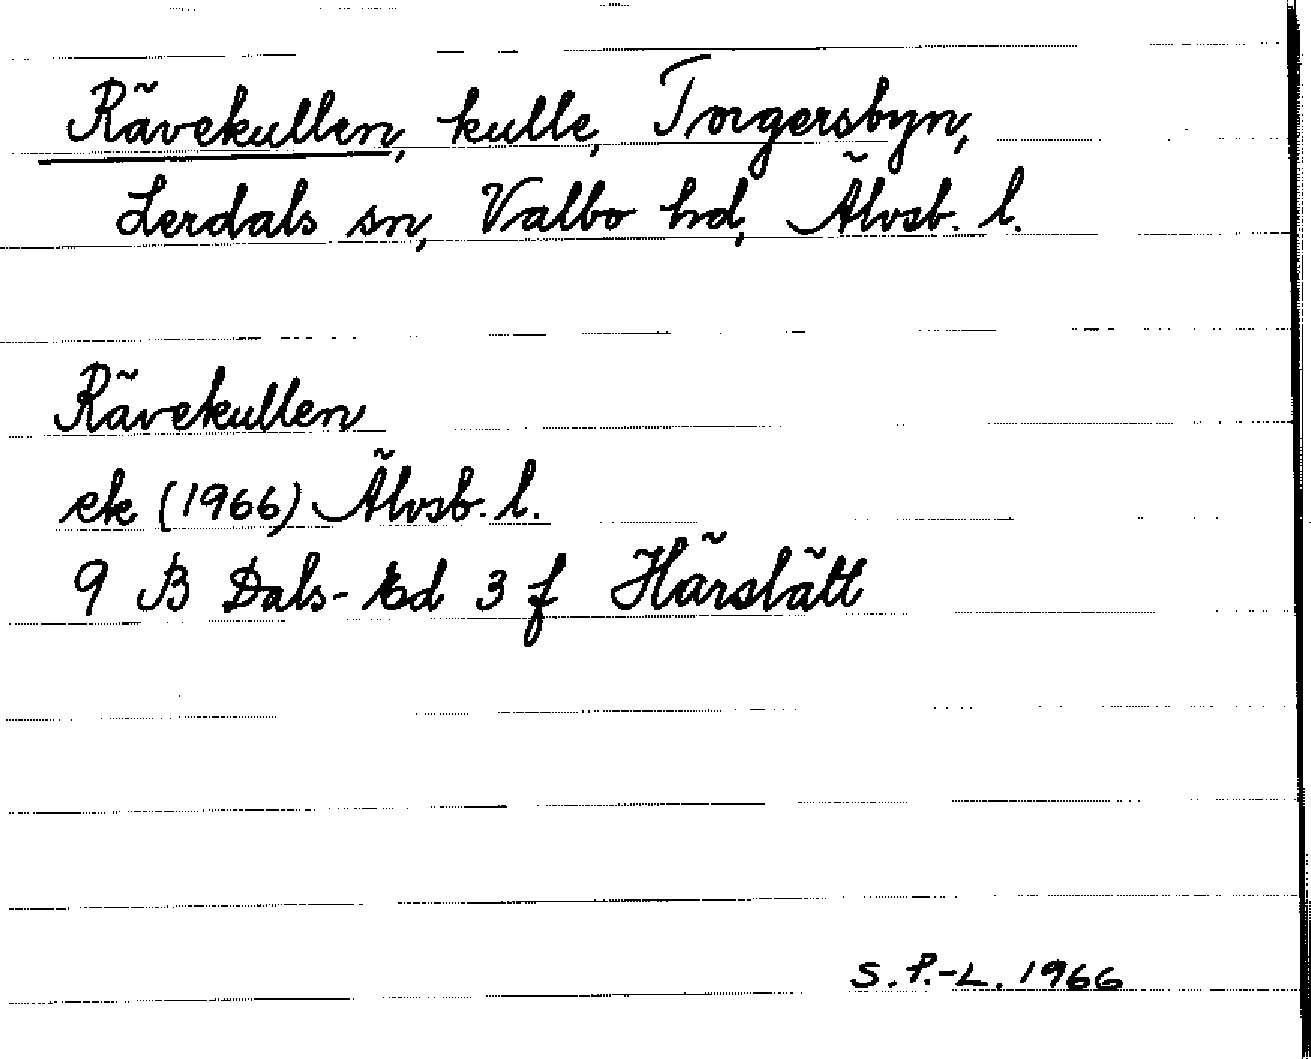 Rävekullen, kulle, Torgersbyn,
Lerdals sn, Valbo hd, Älvsb. l.
Rävekullen
ek (1966) Älvsb. l.
9 B Dals-Ed 3 f Härslätt
S. P.-L. 1966